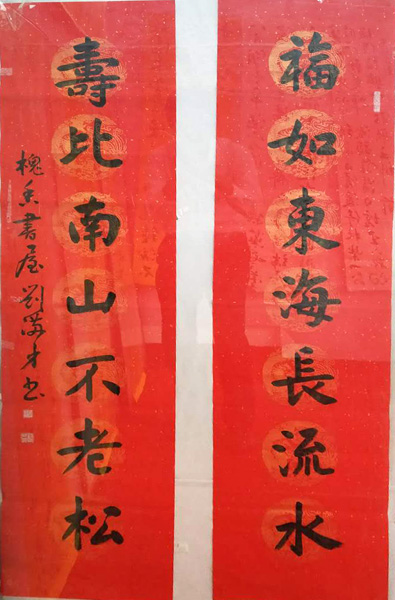 福如東海長流水
壽比南山不老松
槐香書屋劉滿才書